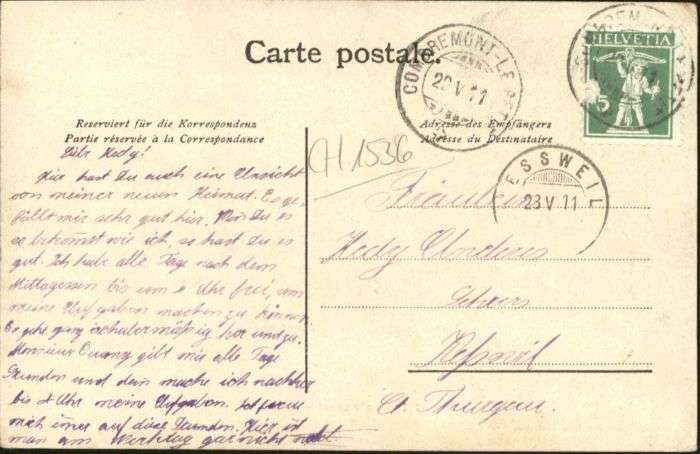 Carte postale.
COMBREMONT-LE-
22 V 11
HELVETIA
5
Reserviert für die Korrespondenz
Partie réservée à la Correspondance
Adresse des Empfängers
Adresse du Destinataire
CH 1536
ESSWEIL
23 V 11
Liebe Hedy!
Hier hast Du auch eine Ansicht
von meiner neuen Heimat. Es ge-
fällt mir sehr gut hier. Wenn Du es
so bekommst wie ich, so hast du es
gut. Ich habe alle Tage nach dem
Mittagessen bis um Uhr frei, um
meine Aufgaben machen zu können.
Es geht ganz schulermäßig her und zu.
Monsieur gibt mir alle Tage
Stunden und dann mache ich nachher
bis 4 Uhr meine Aufgaben. Ich freue
mich immer auf diese Stunden. Hier ist
man am Werktag gar nicht
Fräulein
Hedy Anderes
Kesswil
Ct. Thurgau.